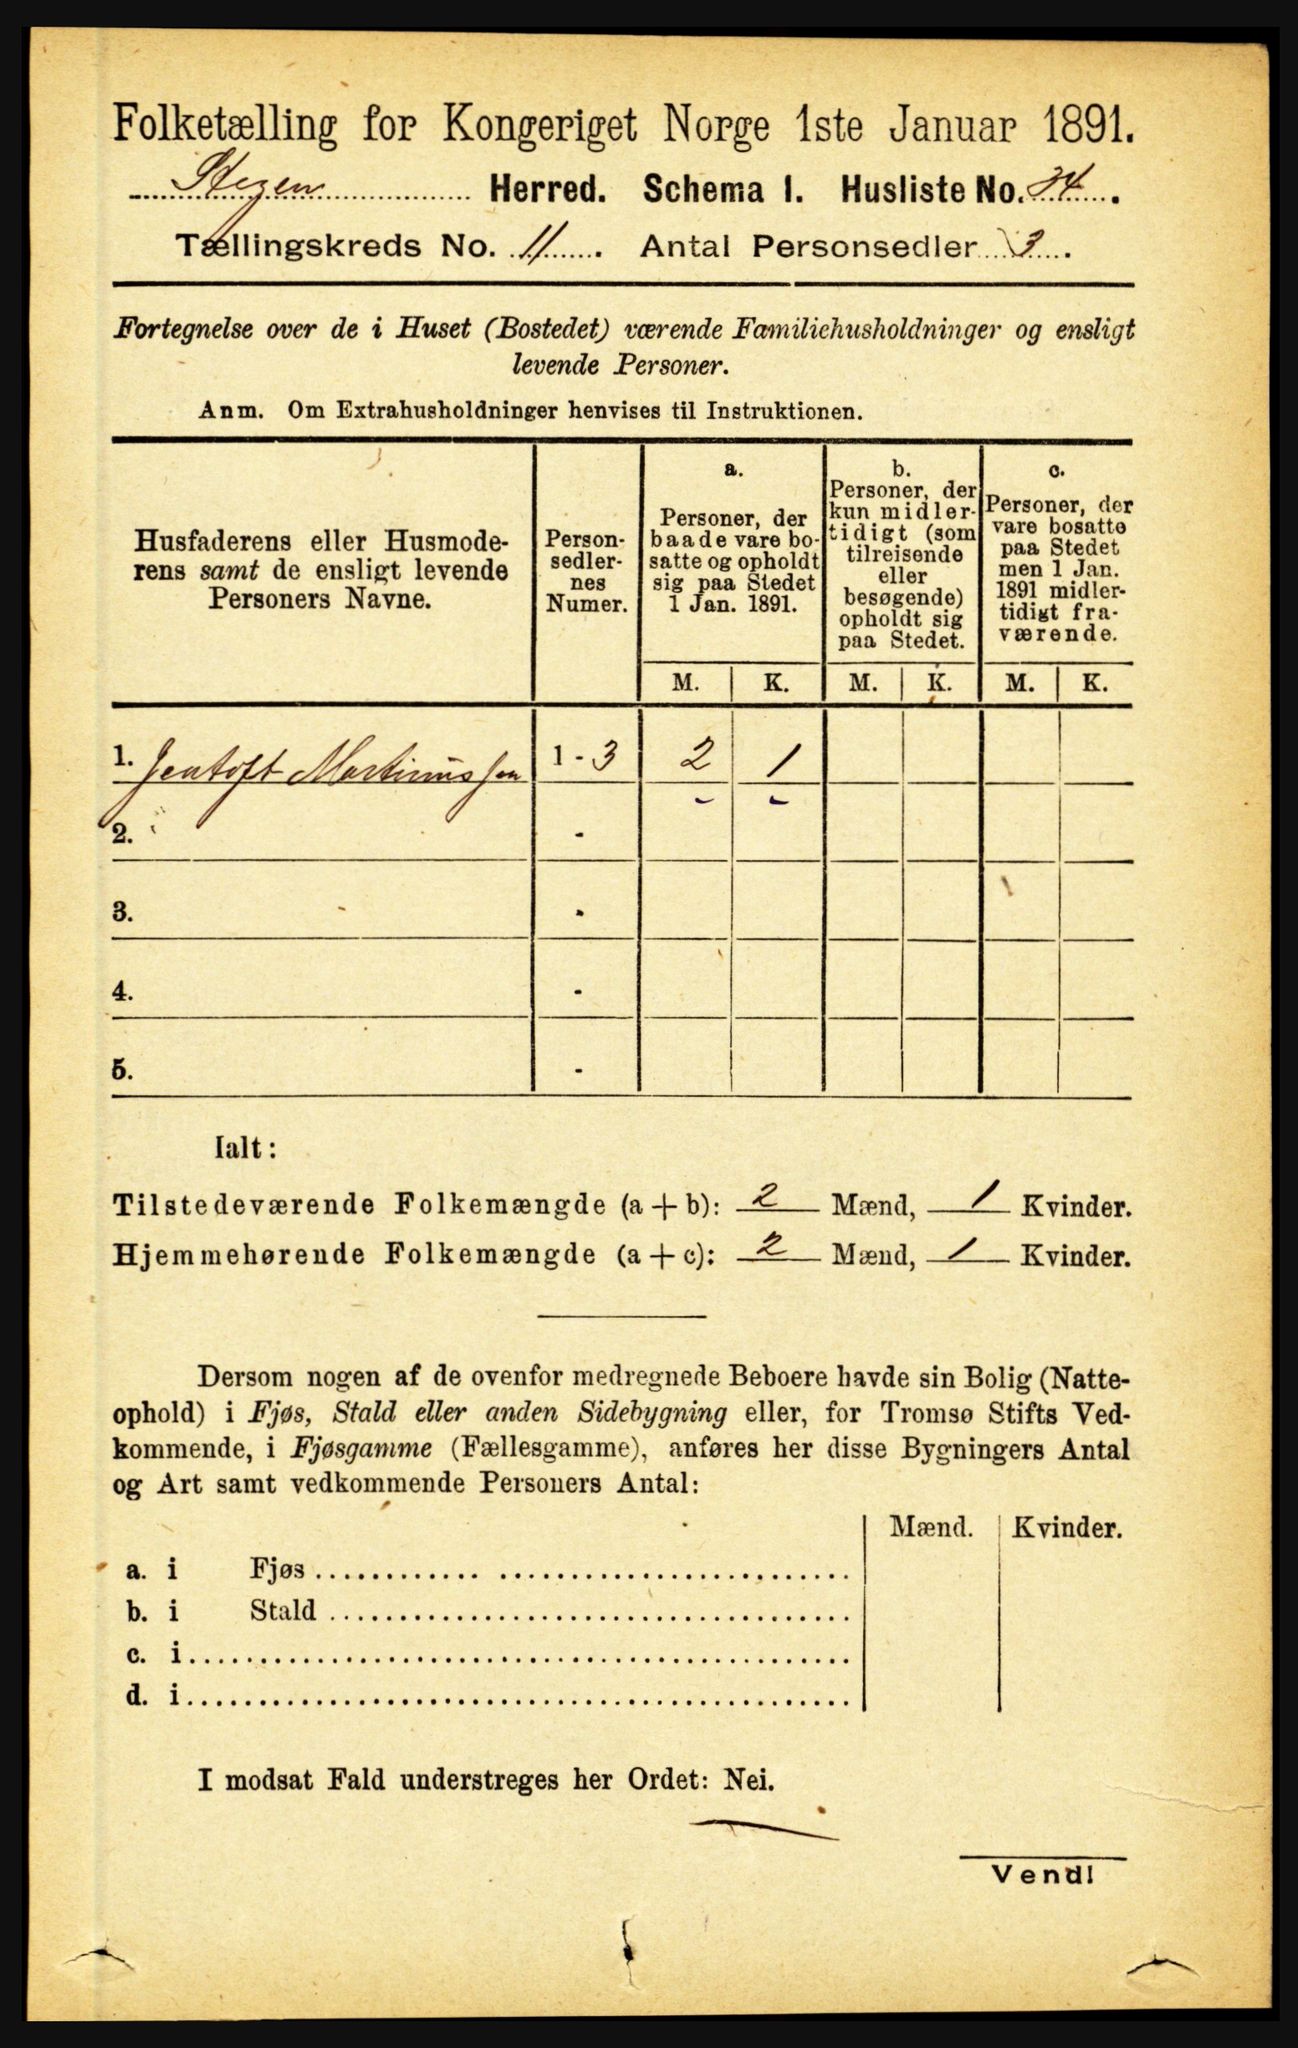 Folketælling for Kongeriget Norge 1ste Januar 1891.
Stegen Herred. Schema I. Husliste No. 34.
Tællingskreds No. 11. Antal Personsedler 3.
Fortegnelse over de i Huset (Bostedet) værende Familiehusholdninger og ensligt
levende Personer.
Anm. Om Extrahusholdninger henvises til Instruktionen.
Husfaderens eller Husmode-
rens samt de ensligt levende
Personers Navne.
Person-
sedler-
nes
Numer.
a.
Personer, der
baade vare bo-
satte og opholdt
sig paa Stedet
1 Jan. 1891.
b.
Personer, der
kun midler-
tidigt (som
tilreisende
eller
besøgende)
opholdt sig
paa Stedet.
c.
Personer, der
vare bosatte
paa Stedet
men 1 Jan.
1891 midler-
tidigt fra-
værende.
M. K. M. K. M. K.
1. Jentoft Martinussen 1 - 3 2 1
2. -
3. -
4. -
5. -
Ialt:
Tilstedeværende Folkemængde (a + b): 2 Mænd, 1 Kvinder.
Hjemmehørende Folkemængde (a + c): 2 Mænd, 1 Kvinder.
Dersom nogen af de ovenfor medregnede Beboere havde sin Bolig (Natte-
ophold) i Fjøs, Stald eller anden Sidebygning eller, for Tromsø Stifts Ved-
kommende, i Fjøsgamme (Fællesgamme), anføres her disse Bygningers Antal
og Art samt vedkommende Personers Antal:
Mænd. Kvinder.
a. i Fjøs
b. i Stald
c. i
d. i
I modsat Fald understreges her Ordet: Nei.
Vend!